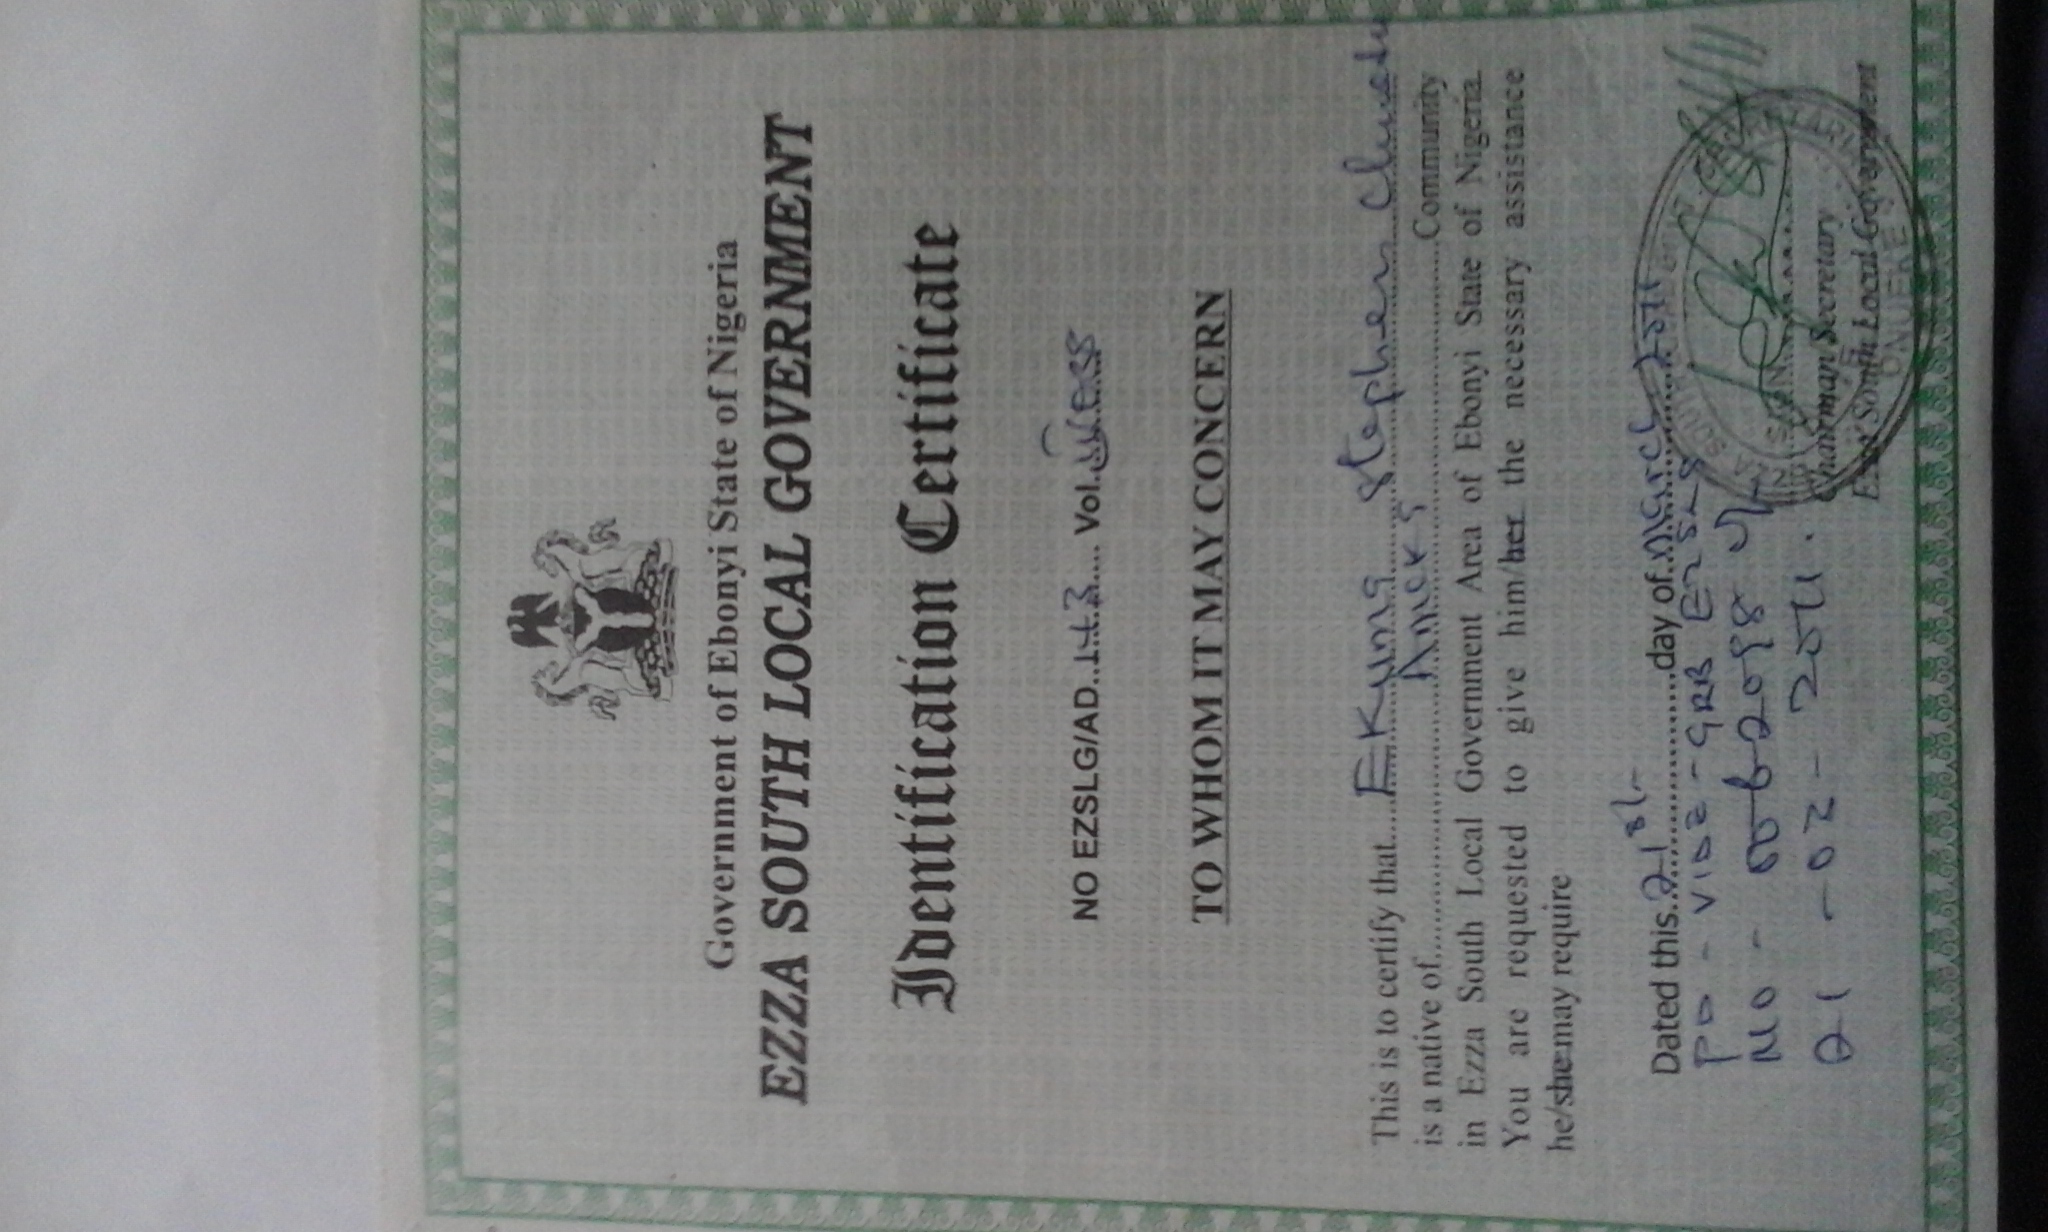 Government of Ebonyi State of Nigeria
EZZA SOUTH LOCAL GOVERNMENT
Identification Certificate
NO EZSLG/AD..143.... Vol.
TO WHOM IT MAY CONCERN
This is to certify that....Ekuma Stephen
is a native of....Ameka....Community
in Ezza South Local Government Area of Ebonyi State of Nigeria.
You are requested to give him/her the necessary assistance
he/she may require
Dated this..21st....day of..March 2011
PD - VIDE - GRB EZSLG
NO -
21 - 03 - 2011.
SIGN
Chairman/Secretary
Ezza South Local Government
ONUEKE